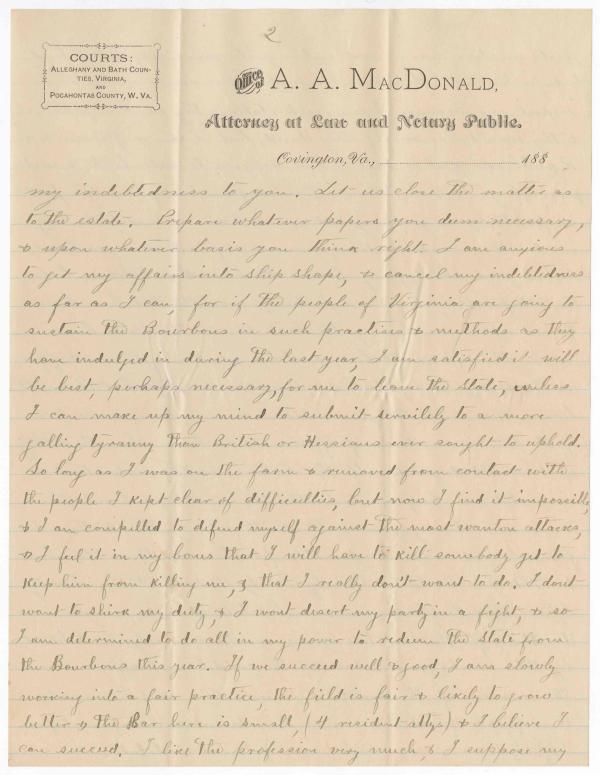 2
COURTS:
ALLEGHANY AND BATH COUN-
TIES, VIRGINIA,
AND
POCAHONTAS COUNTY, W. VA.
Office of A. A. MACDONALD,
Attorney at Law and Notary Public.
Covington, Va., 188
my indebtedness to you. Let us close the matter as
to the estate. Prepare whatever papers you deem necessary,
& upon whatever basis you think right. I am anxious
to get my affairs into ship shape, & cancel my indebtedness
as far as I can, for if the people of Virginia are going to
sustain the Bourbons in such practises & methods as they
have indulged in during the last year, I am satisfied it will
be best, perhaps necessary, for me to leave the State, unless
I can make up my mind to submit servilely to a more
galling tyranny than British or Hessians ever sought to uphold.
So long as I was on the farm & removed from contact with
the people I kept clear of difficulties, but now I find it impossible,
& I am compelled to defend myself against the most wanton attacks,
& I feel it in my bones that I will have to kill somebody yet to
keep him from killing me, & that I really don't want to do. I dont
want to shirk my duty, & I wont desert my party in a fight, & so
I am determined to do all in my power to redeem the State from
the Bourbons this year. If we succeed well & good, I am slowly
working into a fair practice, the field is fair & likely to grow
better & the Bar here is small, (4 resident attys) & I believe I
can succeed. I like the profession very much, & I suppose my